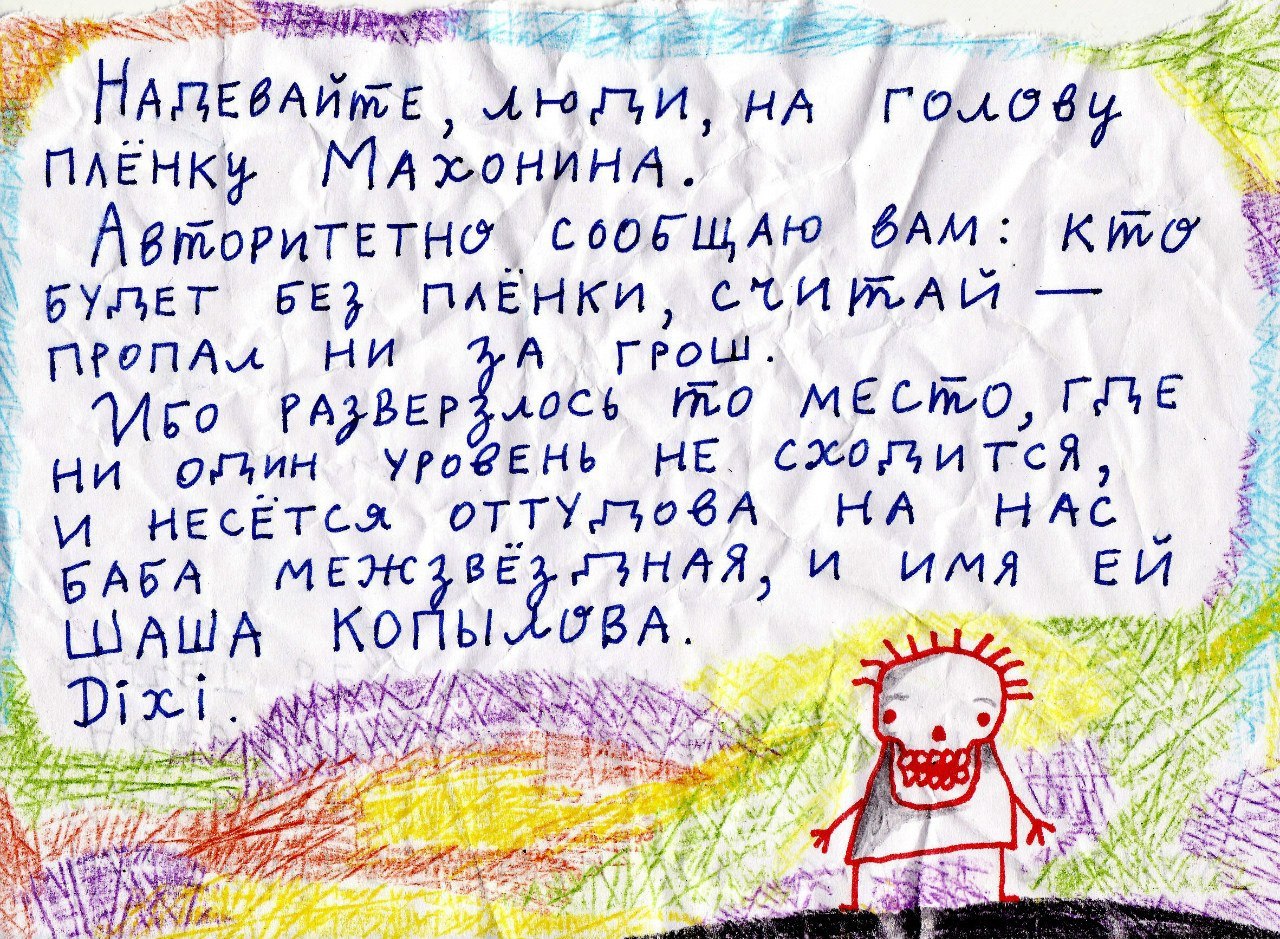 Надевайте, люди, на голову
плёнку Махонина.
Авторитетно сообщаю вам: кто
будет без плёнки, считай —
пропал ни за грош.
Ибо разверзлось то место, где
ни один уровень не сходится,
и несётся оттудова на нас
баба межзвёздная, и имя ей
Шаша Копылова.
Dixi.